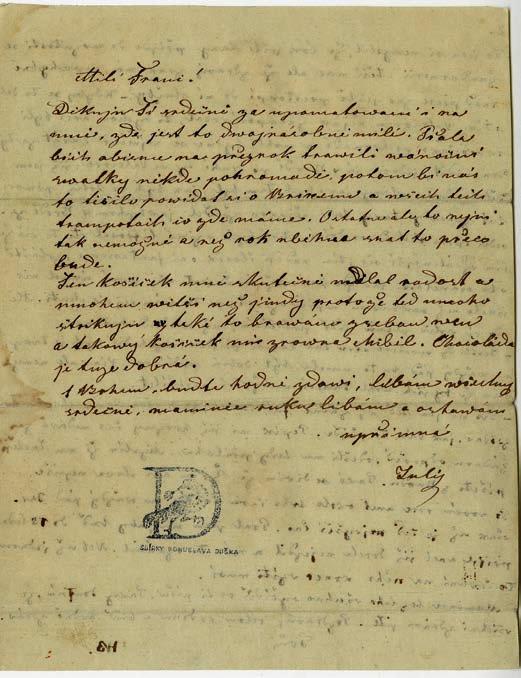 Milí Franc!
Dikujn Ti srdečně za upomatowaní i na
mně, zde jest to dwojnásobně milí. Přála
bich abicme na přezrok trawili wánoční
swatky nikde pohromadě, potom bi nás
to tišilo powídat si o Brixenu a wšech těch
trampotach co zde máme. Ostatně ale to nejni
tak nemožné a než rok ubihne snat to přeco
bude.
Ten košíček mně skutečně udělal radost a
mnohem wětší než jindy protože teď mnoho
štrikujn a také to brawáno sebou wen
a takowý košíček mně zrowna chibil. Chocoláda
je tuze dobrá.
S Bohem, buďte hodně zdrawi, líbám wšechny
srdečně, mamince ruku líbám a ostawám
upřímná
Julij
SBÍRKY BOHUSLAVA DUŠKA